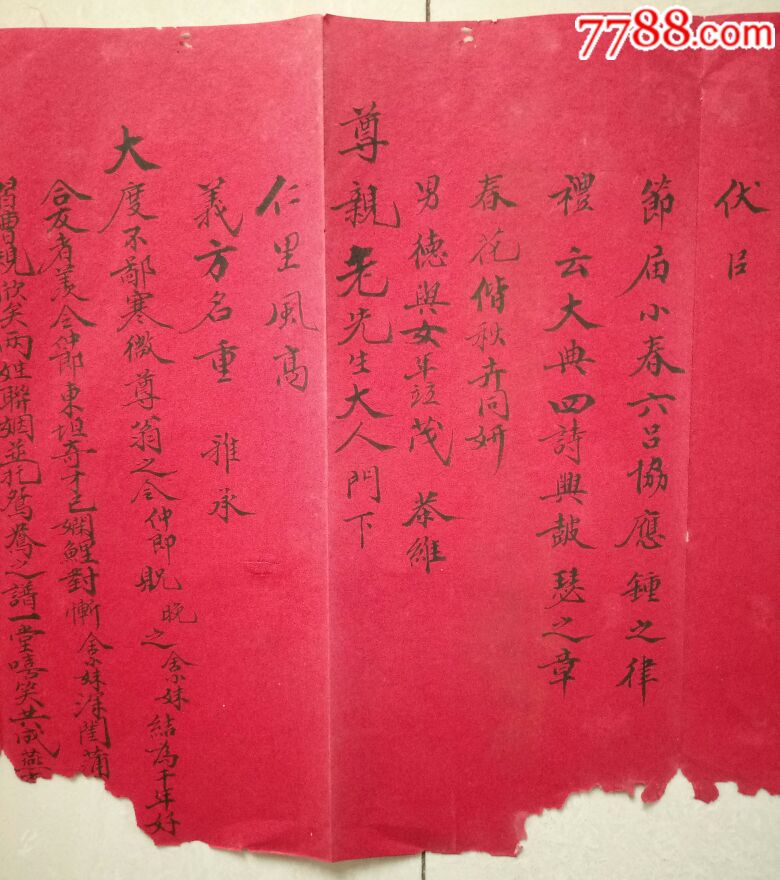 7788.com
伏㠯
節屆小春六呂協應鍾之律
禮云大典四詩興鼓瑟之章
春花偕秋卉同妍
男德與女年竝茂 恭維
尊親老先生大人門下
仁里風高
義方名重 雅承
大度不鄙寒微尊翁之令仲郎貺晚之舍小妹結為千年好
合友者羡令仲郎東坦奇才已嫻鯉對慚舍小妹深閨蒲
曹規欣矣兩姓聯姻並托鴛鴦之譜一堂嘻笑共成燕